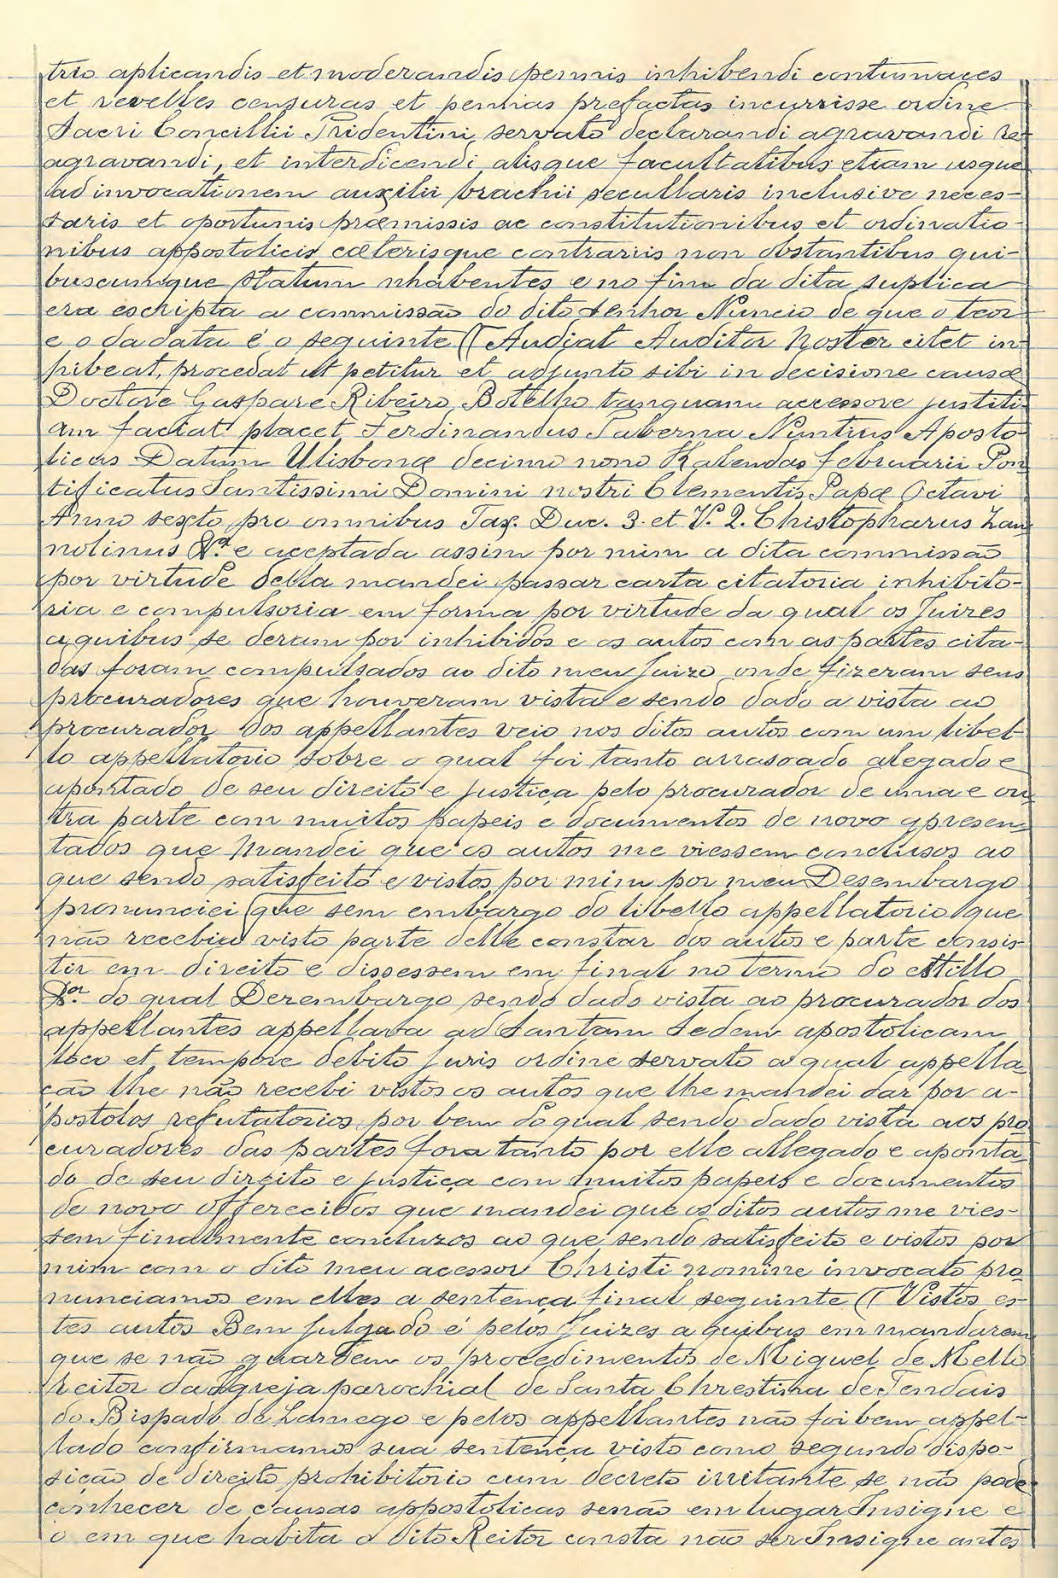 trio aplicandis et moderandis pennis inhibendi contumaces
et revelles censuras et pennas prefactas incurrisse ordine
Sacri Concillii Tridentini servato declarandi agravandi re-
agravandi, et interdicendi alisque facultatibus etiam usque
ad invocationem auxilii brachii secullaris inclusive neces-
saris et oportunis præmissis ac constitutionibus et ordinatio-
nibus appostolicis cœterisque contrariis non obstantibus qui-
buscumque statum nhabentes e no fim da dita suplica
era escripta a commissão do dito Senhor Nuncio de que o teor
e o da data é o seguinte (( Audiat Auditor Noster citet in-
hibeat, procedat ut petitur et adjunto sibi in decisione causæ
Doctore Gaspare Ribeiro Botelho tanquam accessore justiti-
am faciat placet Ferdinandus Taberna Nuntius Aposto
licus Datum Ulisbonæ decimo nono Kalendas februarii Pon
tificatus Santissimi Domini nostri Clementis Papæ Octavi
Anno sexto pro omnibus Tax. Duc. 3. et V. 2. Christopharus Zan
nolinus e aceptada assim por mim a dita commissão
por virtude della mandei passar carta citatoria inhibito-
ria e compulsoria em forma por virtude da qual os Juizes
a quibus se deram por inhibidos e os autos com as partes cita-
das foram compulsados ao dito meu Juizo onde fizeram seus
procuradores que houveram vista e sendo dado a vista ao
procurador dos appellantes veio nos ditos autos com um libel-
lo appellatorio sobre o qual foi tanto arrasoado alegado e
apontado de seu direito e justiça pelo procurador de uma e ou
tra parte com muitos papeis e documentos de novo apresen-
tados que Mandei que os autos me viessem conclusos ao
que sendo satisfeito e vistos por mim por meu Desembargo
pronunciei (que sem embargo do libello appellatorio que
não recebiu visto parte delle constar dos autos e parte consis-
tir em direito e dissessem em final no termo do estillo
do qual Derembargo sendo dado vista ao procurador dos
appellantes appellara ad Santam Sedem apostolicam
loco et tempore debito juris ordine servato a qual appella
ção lhe não recebi vistos os autos que lhe mandei dar por a-
postolos refutatorios por bem do qual sendo dado vista aos pro
curadores das partes fora tanto por elle allegado e aponta
do de seu direito e justiça com muitos papeis e documentos
de novo offerecidos que mandei que os ditos autos me vies-
sem finalmente concluzos ao que sendo satisfeito e vistos por
mim com o dito meu acessor Christi nomine invocato pro
nunciamos em elles a sentença final seguinte (( Vistos es-
tes autos Bem julgado é pelos juizes a quibus em mandarem
que se não guardem os procedimentos de Miguel de Mello
reitor da Igreja parochial de Santa Chrestina de Tendais
do Bispado de Lamego e pelos appellantes não foi bem appel-
lado confirmamos sua sentença visto como segundo dispo-
sição de direito prohibitorio cum decreto irritante se não pode
conhecer de causas appostolicas senão em lugar Insigne e
o em que habita o dito Reitor consta não ser Insigne antes